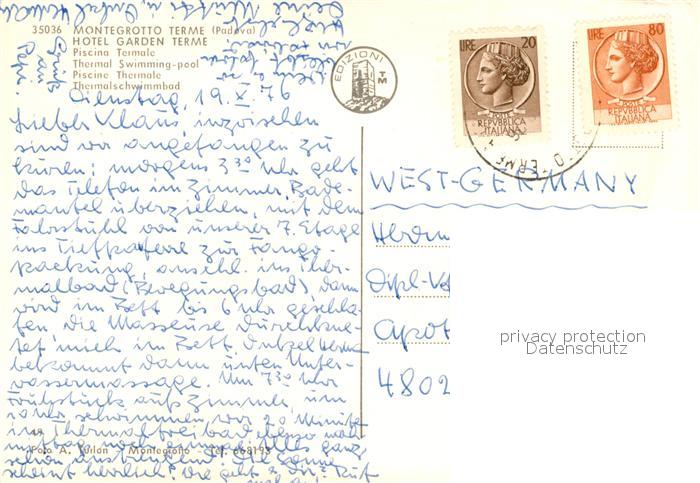 35036 MONTEGROTTO TERME (Padova)
HOTEL GARDEN TERME
Piscina Termale
Thermal Swimming-pool
Piscine Thermale
Thermalschwimmbad
EDIZIONI
TM
LIRE 20
POSTE
REPVBBLICA
ITALIANA
LIRE 80
POSTE
REPVBBLICA
ITALIANA
Dienstag, 19.X.76
Lieber Klaus, inzwischen
sind wir angefangen zu
kuren: morgens 3³⁰ Uhr geht
das Telefon im Zimmer, Bade-
mantel überziehen, mit dem
Fahrstuhl von unserer 7. Etage
ins Tiefparterre zur Fango-
packung, anschl. ins Ther-
malbad (Bewegungsbad), dann
wird im Bett bis 6 Uhr geschla-
fen, die Masseuse durchkne-
tet mich im Bett. Onkel
bekommt dann unten Unter-
wassermassage. Um 7³⁰ Uhr
Frühstück aufs Zimmer, um
10 Uhr schwimmen, vor 20 Minuten
im Thermalfreibad,
mittag noch einmal. Alles ganz
schön anstrengend. Die Sonne
scheint herrlich. Wie geht es Dir? Ruf
WEST-GERMANY
Herrn
Dipl-
Apot
4802
privacy protection
Datenschutz
Foto A. Turlon - Montegrotto - Tel. 668195